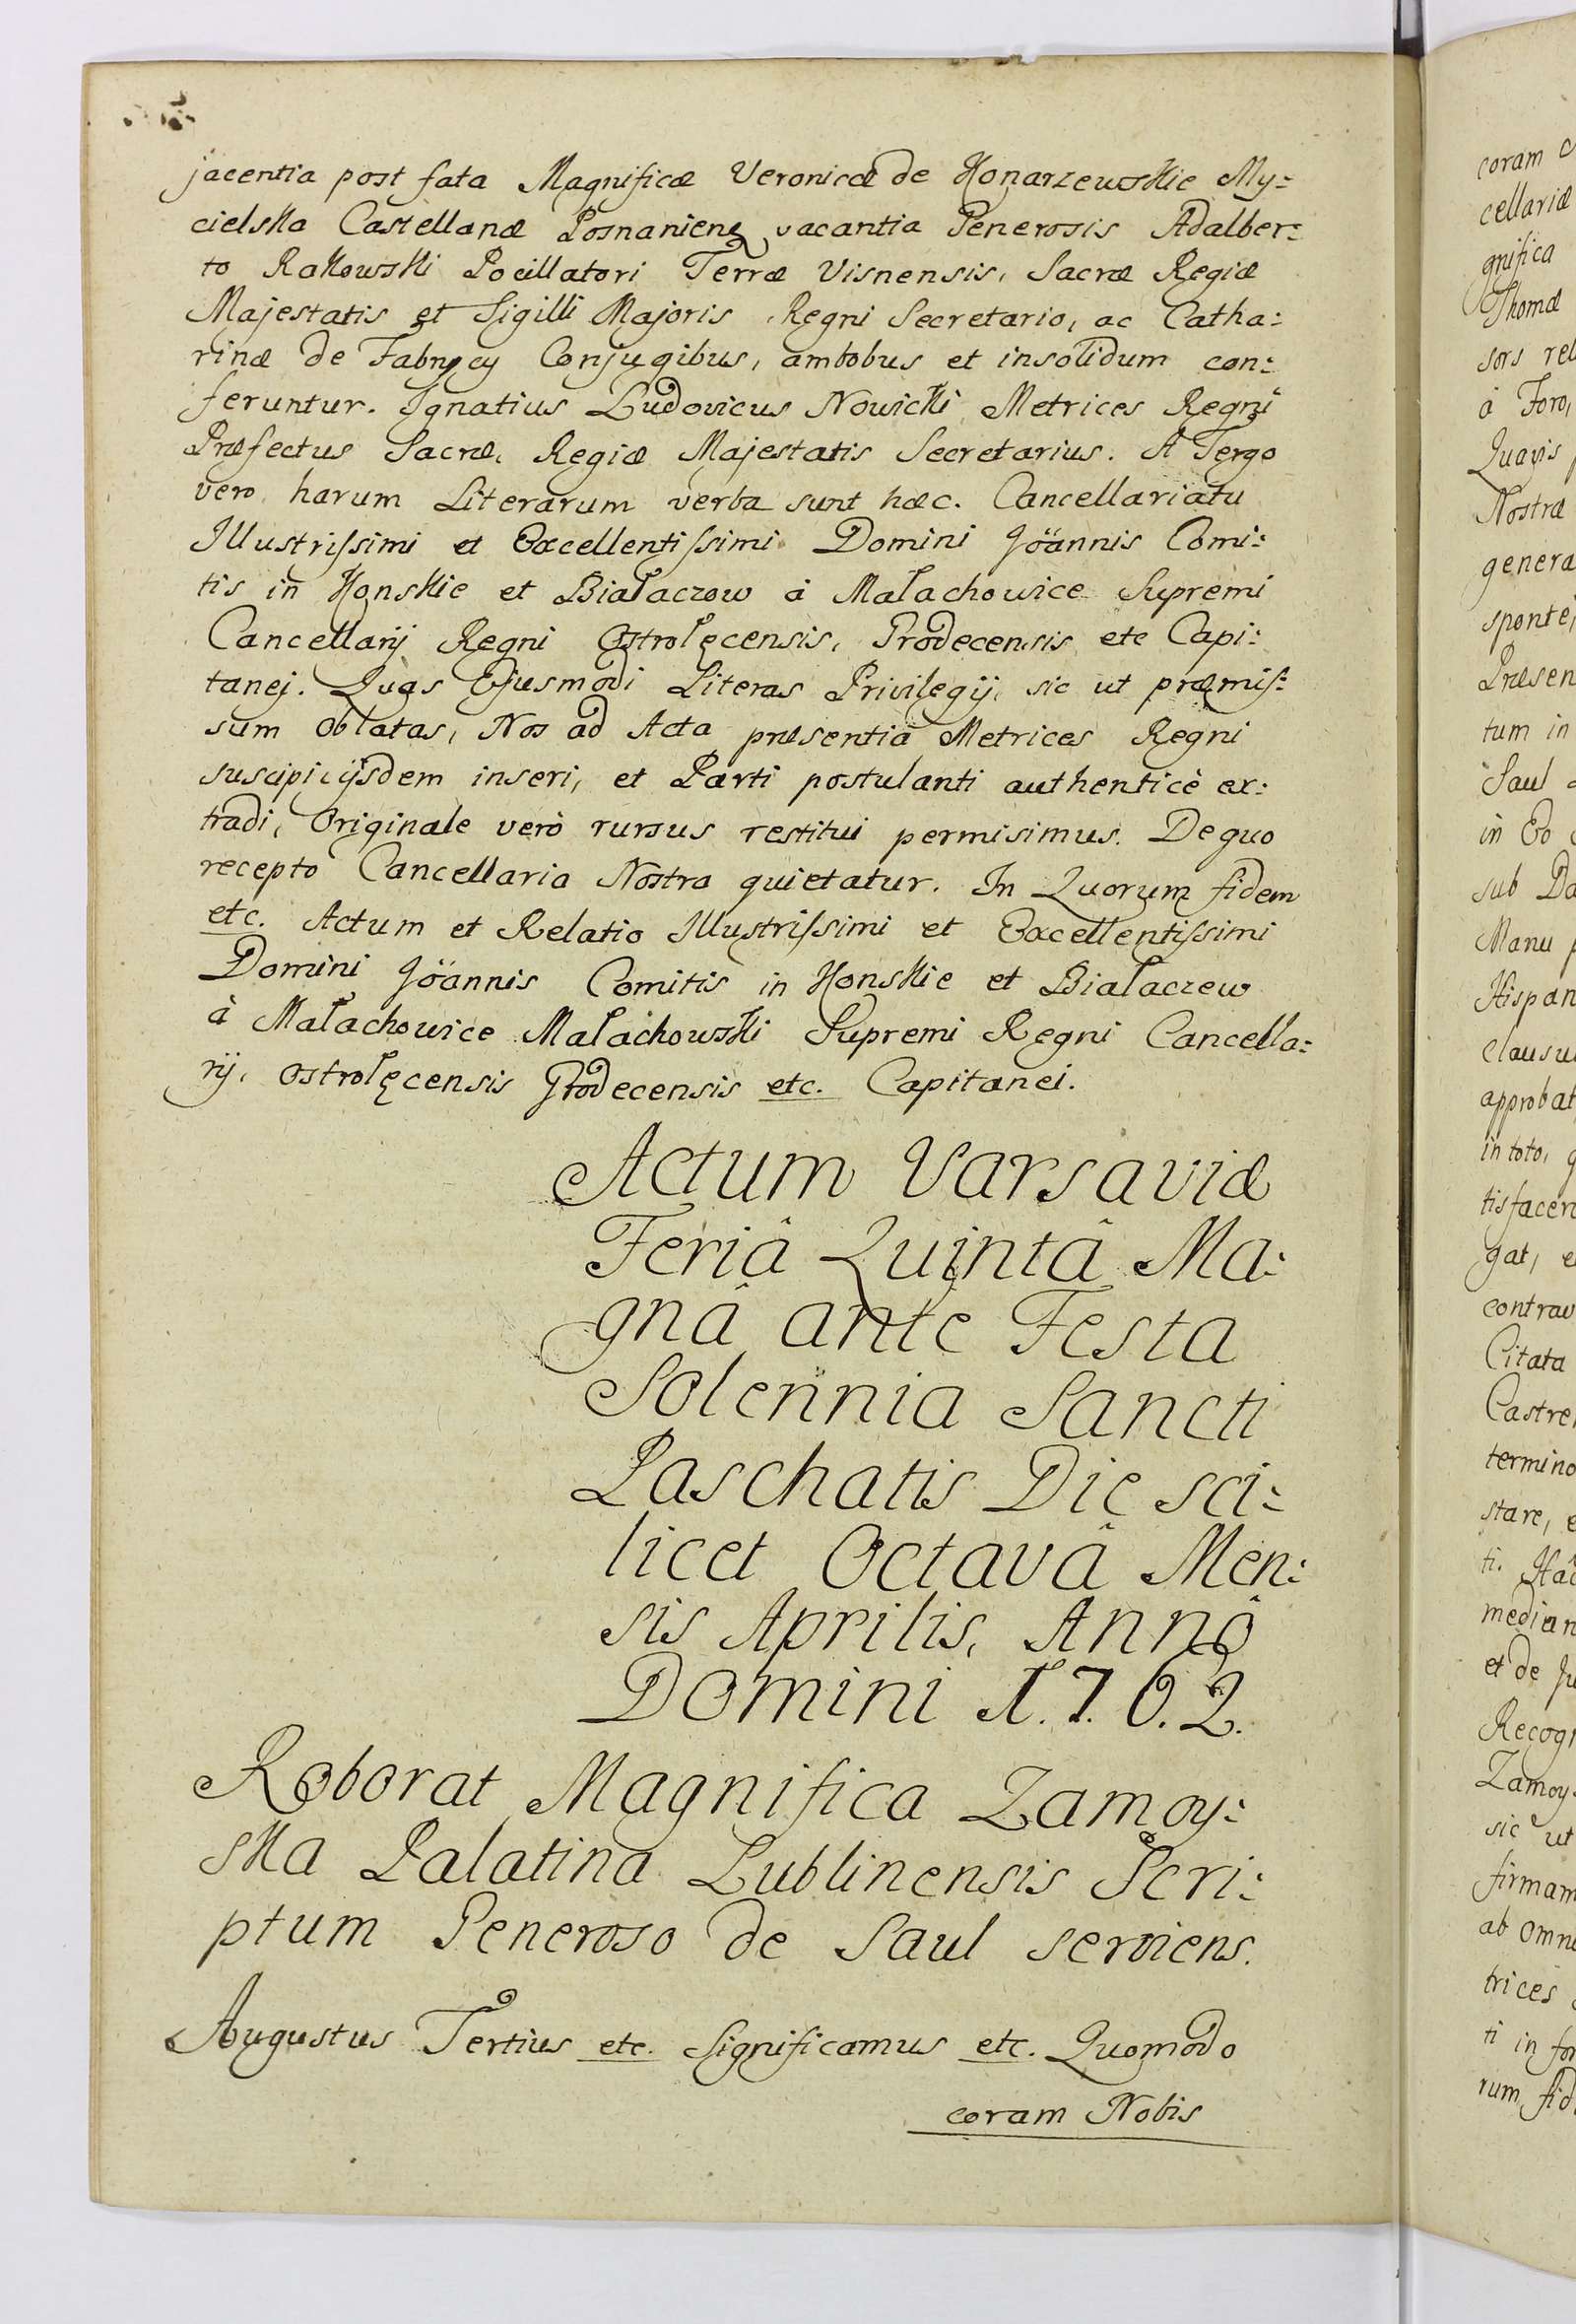 jacentia post fata Magnificæ Veronicæ de Konarzewskie My:
cielska Castellanæ Posnaniens vacantia Generosis Adalber:
to Rakowski Pocillatori Terræ Visnensis, Sacræ Regiæ
Majestatis et Sigilli Majoris Regni Secretario, ac Catha:
rinæ de Fabrycy Conjugibus, ambobus et insolidum con:
feruntur. Ignatius Ludovicus Nowicki Metrices Regni
Præfectus Sacræ, Regiæ Majestatis Secretarius. A Tergo
vero harum Literarum verba sunt hæc. Cancellariatu
Illustrissimi et Excellentissimi Domini Joännis Comi:
tis in Konskie et Białaczow à Małachowice Supremi
Cancellarij Regni Ostrołęcensis, Grodecensis etc Capi:
tanej. Quas Ejusmodi Literas Privilegij, sic ut præmis:
sum oblatas, Nos ad Acta præsentia Metrices Regni
suscipi, ijsdem inseri, et Parti postulanti authenticè ex:
tradi, Originale verò rursus restitui permisimus. De quo
recepto Cancellaria Nostra quietatur. In Quorum fidem
etc. Actum et Relatio Illustrissimi et Excellentissimi
Domini Joännis Comitis in Konskie et Białaczew
à Małachowice Małachowski Supremi Regni Cancella:
rij, Ostrołęcensis Grodecensis etc. Capitanei.
Actum Varsaviæ
Feriâ Quintâ Ma:
gnâ ante Festa
Solennia Sancti
Paschatis Die sci:
licet Octavâ Men:
sis Aprilis, Annô
Domini 1.7.6.2.
Roborat Magnifica Zamoy:
ska Palatina Lublinensis Scri:
ptum Generoso de Saul serviens.
Augustus Tertius etc. Significamus etc. Quomodo
coram Nobis
coram
cellariæ
gnifica
Thomæ
sors
à Foro,
Quavis
Nostra
genera
sponte,
Præsen
tum in
Saul
in Eo
sub
Manu
Hispan
clausu
approbat
in toto,
tisfacen
gat,
contrav
Citata
Castre
termino
stare,
ti.
median
et de
Recogn
Zamoy
sic ut
firmam
ab omni
trices
ti in
rum